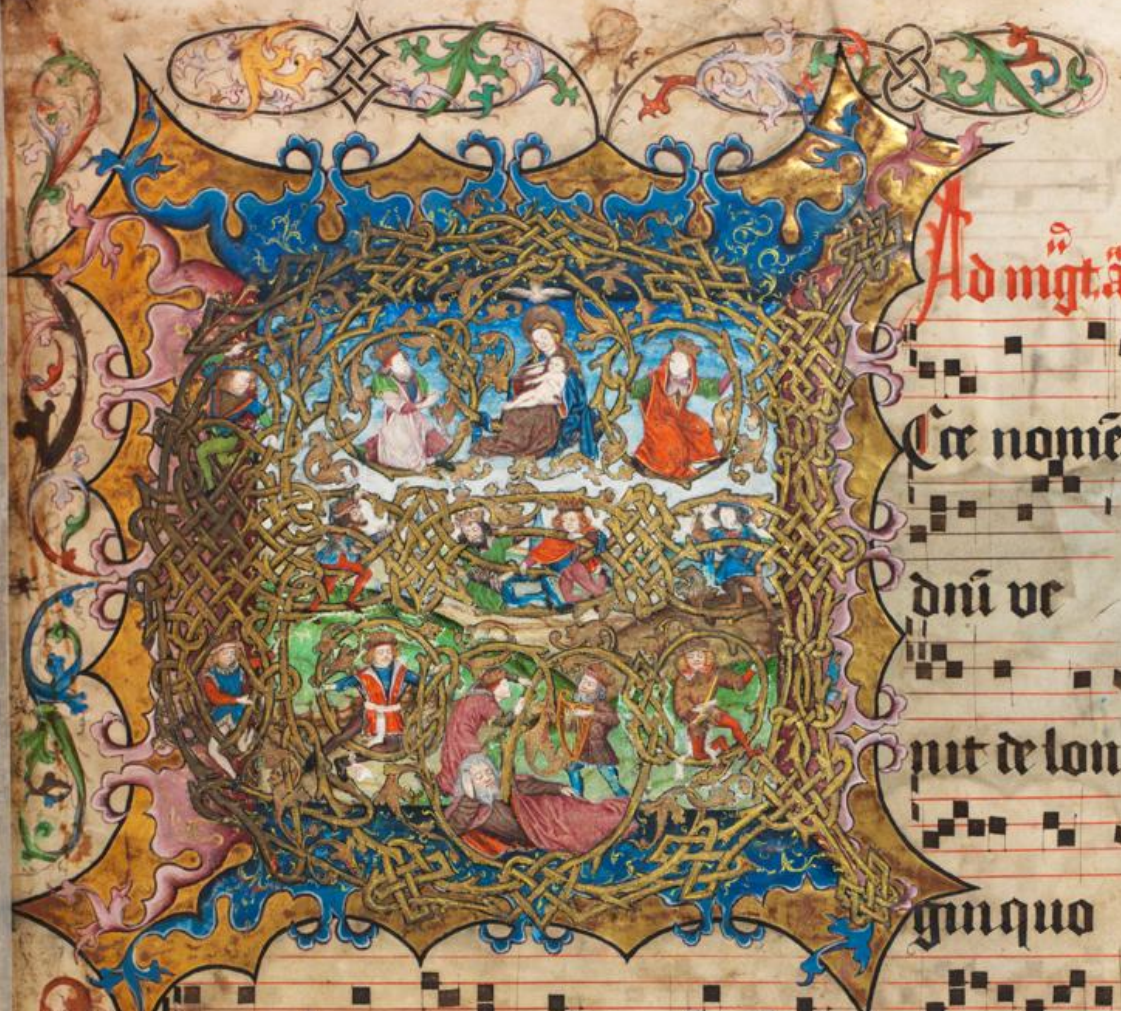 Ad m̃gt.ã
Cce nomē
dn̄i ve
nit de lon
ginquo